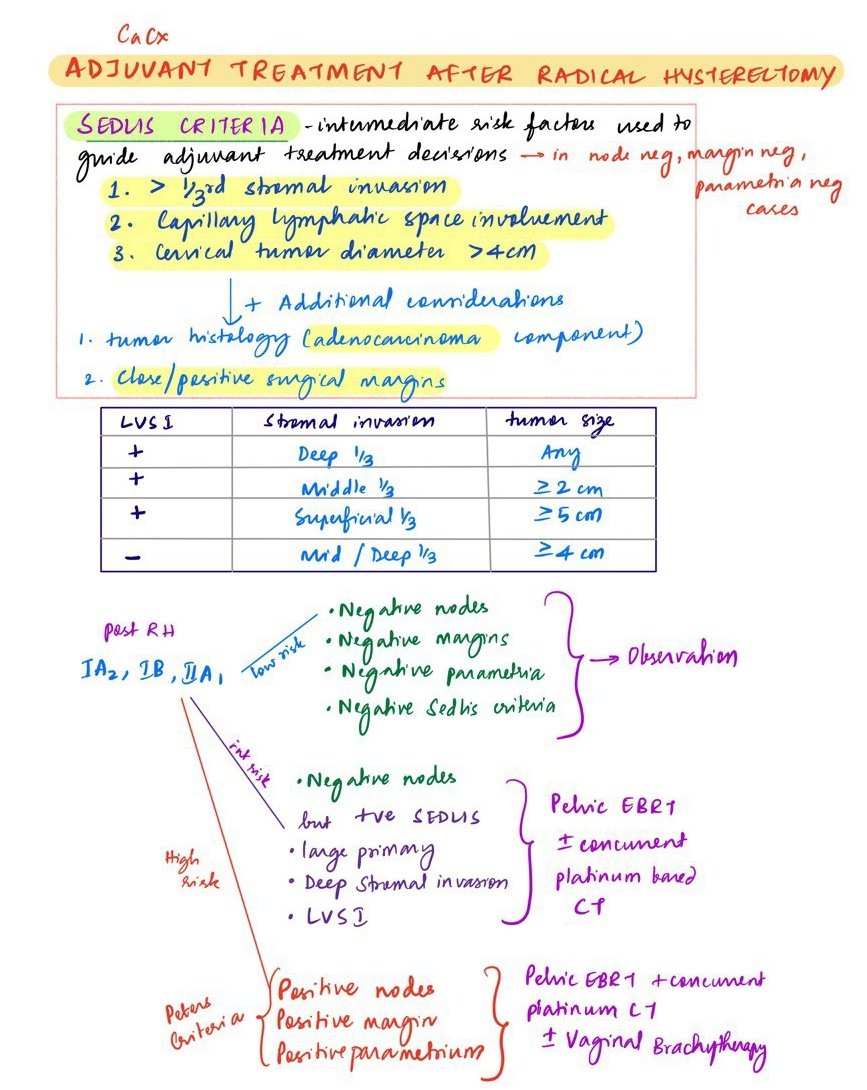 CaCx
ADJUVANT TREATMENT AFTER RADICAL HYSTERECTOMY
SEDLIS CRITERIA - intermediate risk factors used to
guide adjuvant treatment decisions → in node neg, margin neg,
parametria neg
cases
1. > 1/3rd stromal invasion
2. Capillary lymphatic space involvement
3. Cervical tumor diameter >4cm
+ Additional considerations
1. tumor histology (adenocarcinoma component)
2. Close/positive surgical margins
LVSI Stromal invasion tumor size
+ Deep 1/3 Any
+ Middle 1/3 ≥2 cm
+ Superficial 1/3 ≥5 cm
– Mid / Deep 1/3 ≥4 cm
post RH
IA2, IB, IIA1
low risk
• Negative nodes
• Negative margins
• Negative parametria
• Negative Sedlis criteria
→ Observation
int risk
• Negative nodes
but +ve SEDLIS
• large primary
• Deep Stromal invasion
• LVSI
Pelvic EBRT
± concurrent
platinum based
CT
High
risk
Peters
Criteria
Positive nodes
Positive margin
Positive parametrium
Pelvic EBRT + concurrent
platinum CT
± Vaginal Brachytherapy